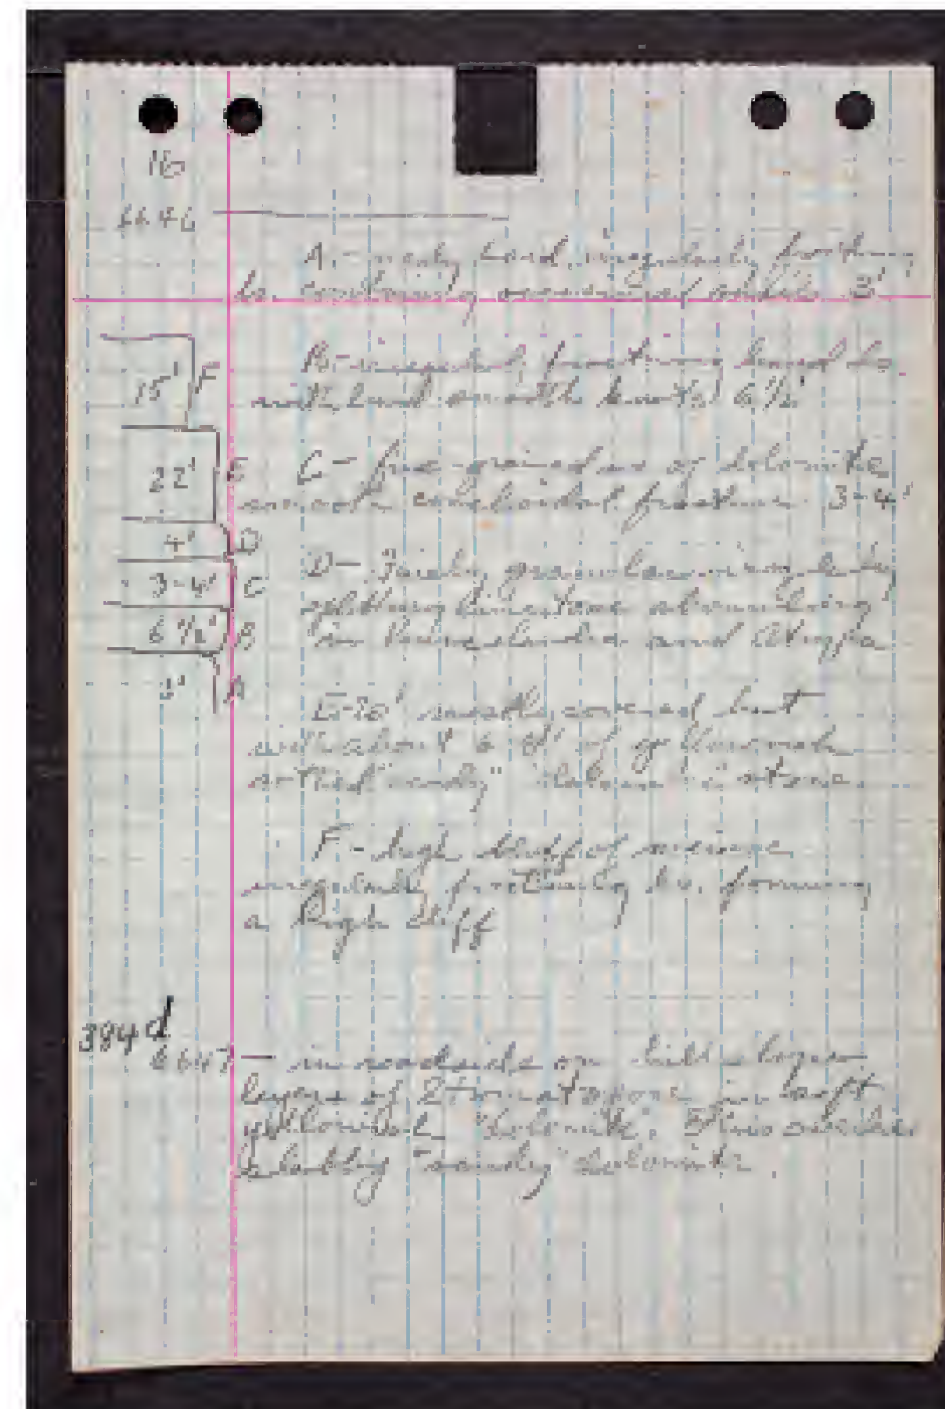 16
6646
A - hard, irregularly
ls. containing occasional 3'
B - irregular fracturing hard ls.
with hard smooth 6 1/2'
C - fine-grained dolomite
smooth conchoidal fracture 3-4'
D - Finely granular irregularly
splitting limestone abounding
in and Atrypa
E - 20' mostly covered but
with about of yellowish
"sandy" stone.
F - high bluff of
irregularly fracturing ls. forming
a high cliff
15' F
22' E
4' D
3-4' C
6 1/2' B
3' A
384d
6647 - in roadside on hill slope
layers of Stromatopora in soft
yellowish "dolomite". This overlies
slabby "sandy" dolomite.